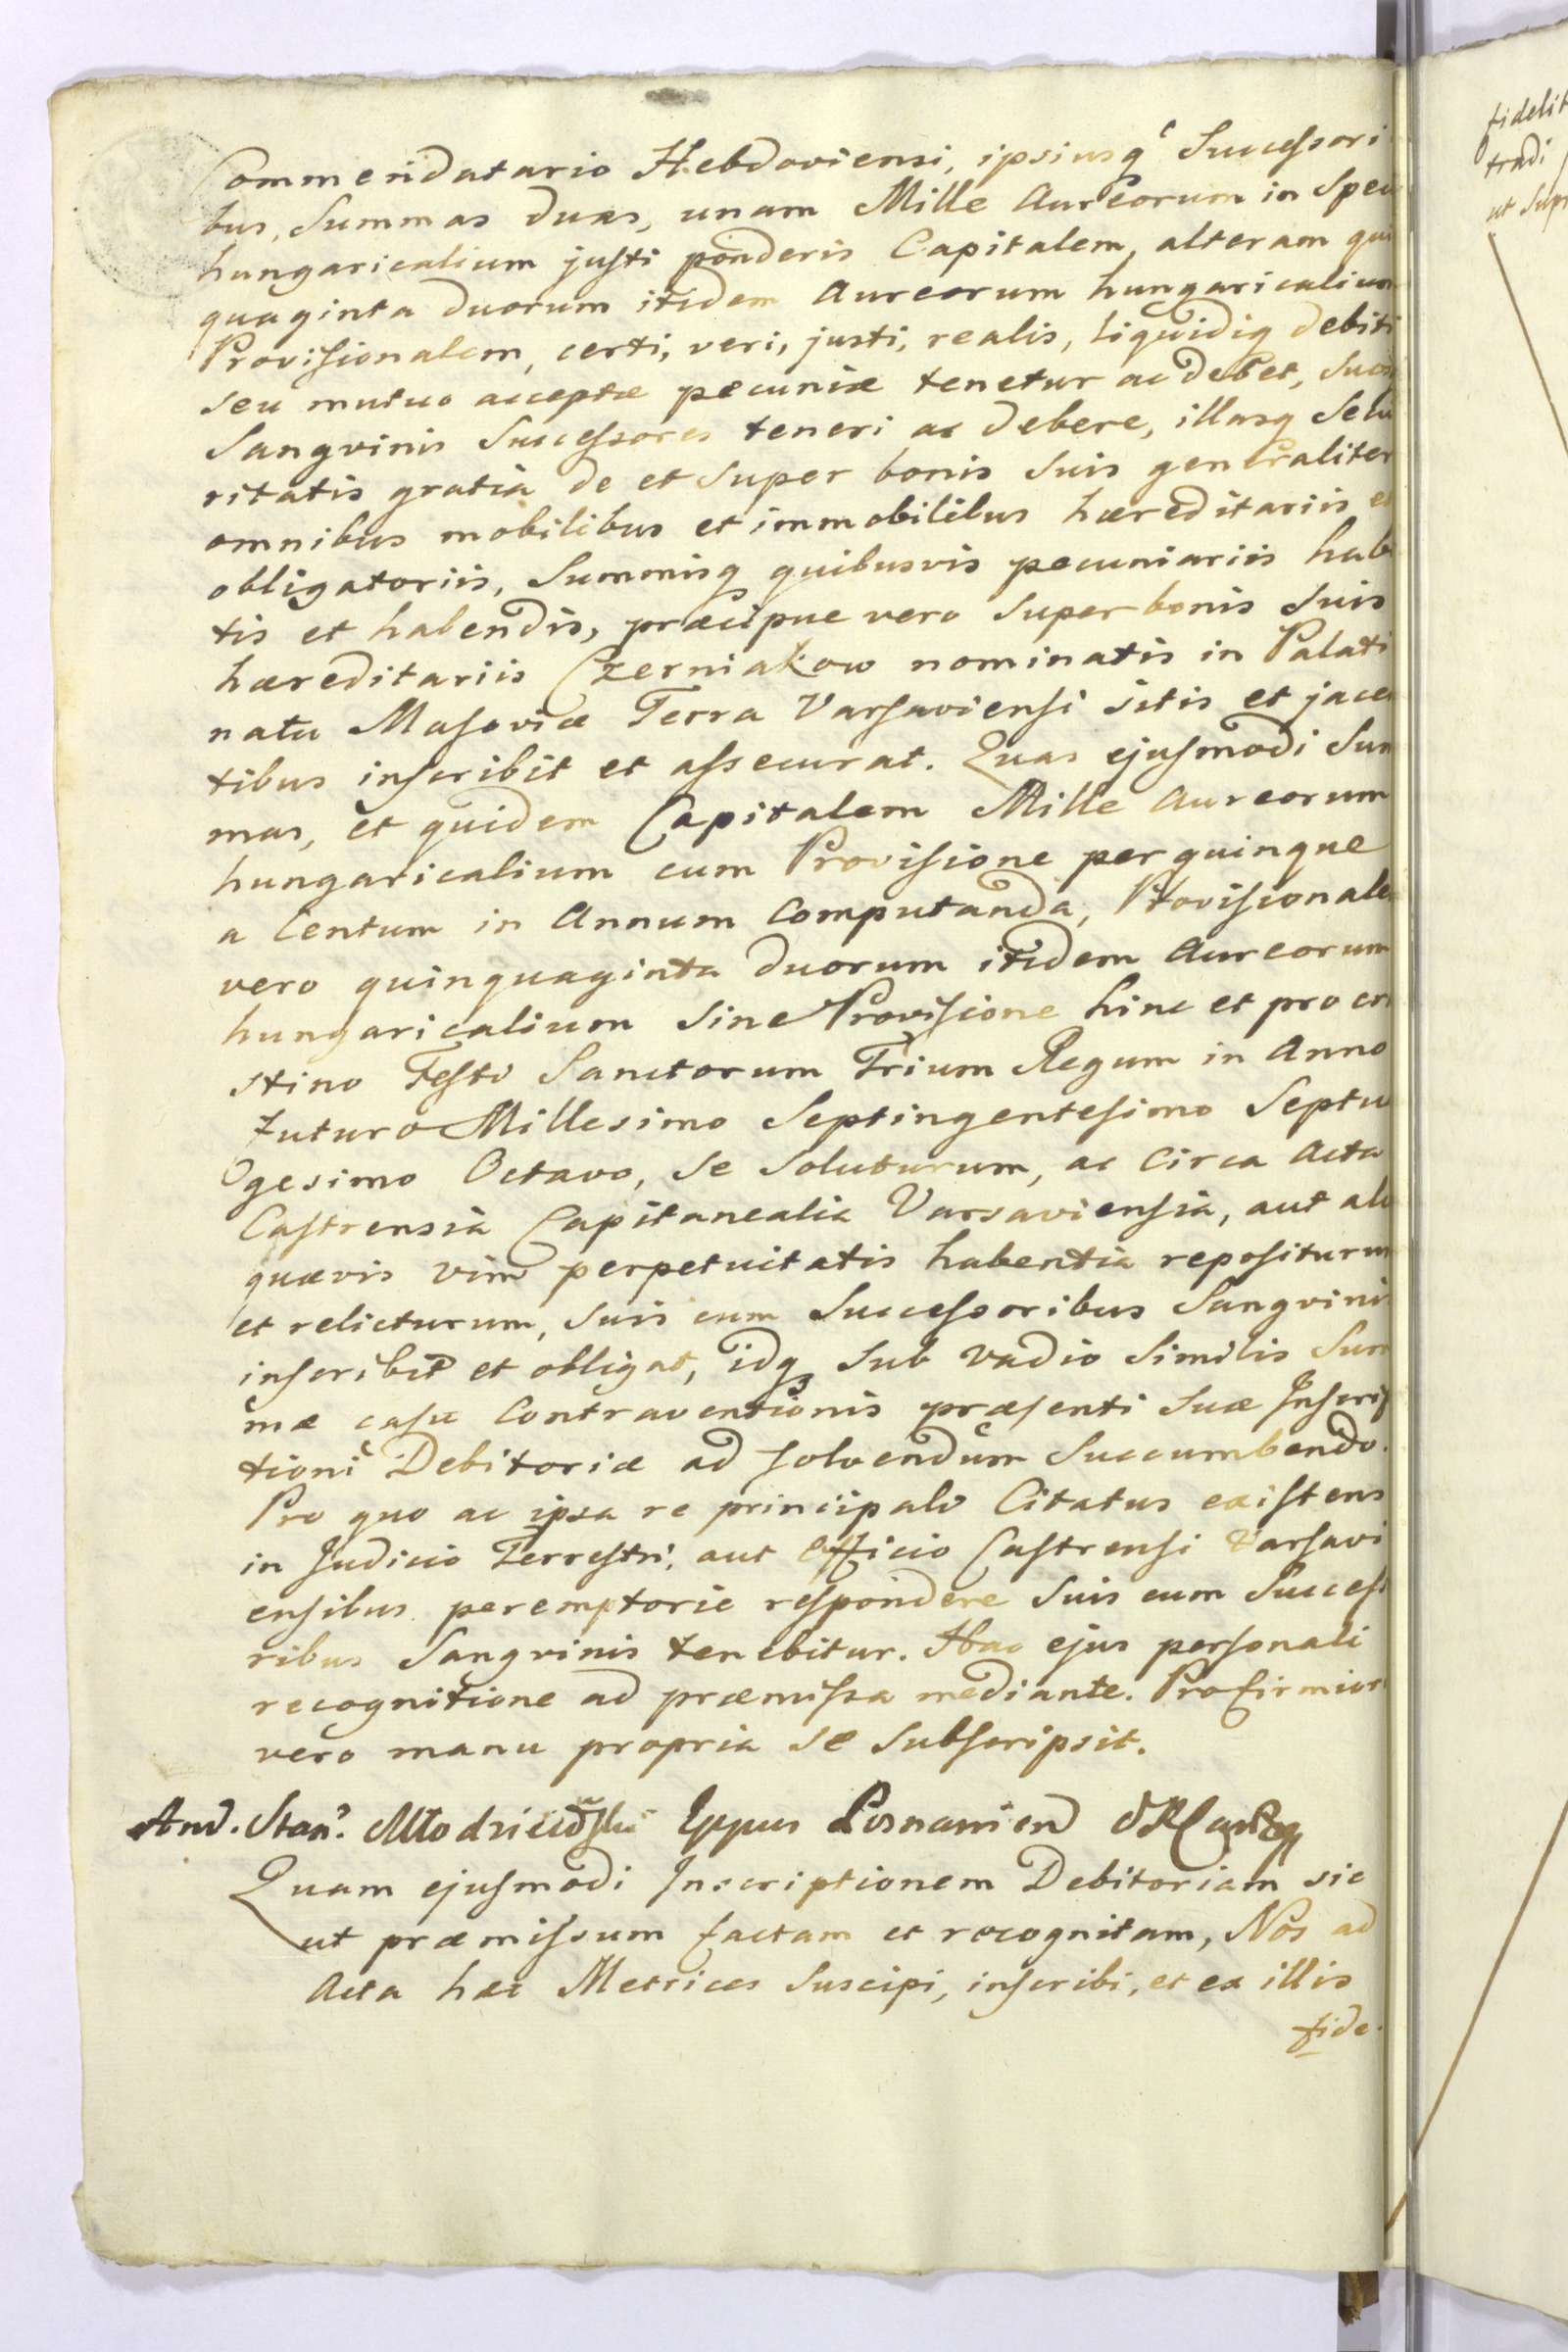 Commendatario Hebdoviensi, ipsiusq Successori
bus, Summas duas, unam Mille Aureorum in Spec
hungaricalium justi ponderis Capitalem, alteram qui
quaginta duorum itidem Aureorum hungaricalium
Provisionalem, certi, veri, justi, realis, liquidiq debiti
seu mutuo acceptæ pecuniæ tenetur ac debet, Suosq
Sangvinis Successores teneri ac debere, illasq Secu
ritatis gratia de et Super bonis Suis generaliter
omnibus mobilibus et immobilibus hæreditariis et
obligatoriis, Summisq quibusvis pecuniariis habi
tis et habendis, præcipue vero Super bonis Suis
hæreditariis Czerniakow nominatis in Palati
natu Masoviæ Terra Varsaviensi sitis et jacen
tibus inscribit et assecurat. Quas ejusmodi Sum
mas, et quidem Capitalem Mille Aureorum
hungaricalium cum Provisione per quinque
a Centum in Annum Computanda, Provisionale
vero quinquaginta duorum itidem Aureorum
hungaricalium Sine Provisione hinc et pro cra
stino Festi Sanctorum Trium Regum in Anno
futuro Millesimo Septingentesimo Septua
gesimo Octavo, Se Soluturum, ac Circa Acta
Castrensia Capitanealia Varsaviensia, aut alia
quævis vim perpetuitatis habentia repositurum
et relicturum, Suis cum Successoribus Sangvinis
inscribit et obligat, idq Sub Vadio Similis Sum
mæ casu Contraventionis præsenti Suæ Inscrip
tioni Debitoriæ ad solvendum Succumbendo.
Pro quo ac ipsa re principali Citatus existens
in Judicio Terrestri, aut Officio Castrensi Varsavi
ensibus peremptorie respondere Suis cum Successo
ribus Sangvinis tenebitur. Hac ejus personali
recognitione ad præmissa mediante. Pro firmiori
vero manu propria Se Subscripsit.
And. Stan. Młodzieiowski Eppus Posnanien
Quam ejusmodi Inscriptionem Debitoriam sic
ut præmissum factam et recognitam, Nos ad
Acta hæc Metrices Suscipi, inscribi, et ex illis
fide
fidelit
tradi
ut Supr